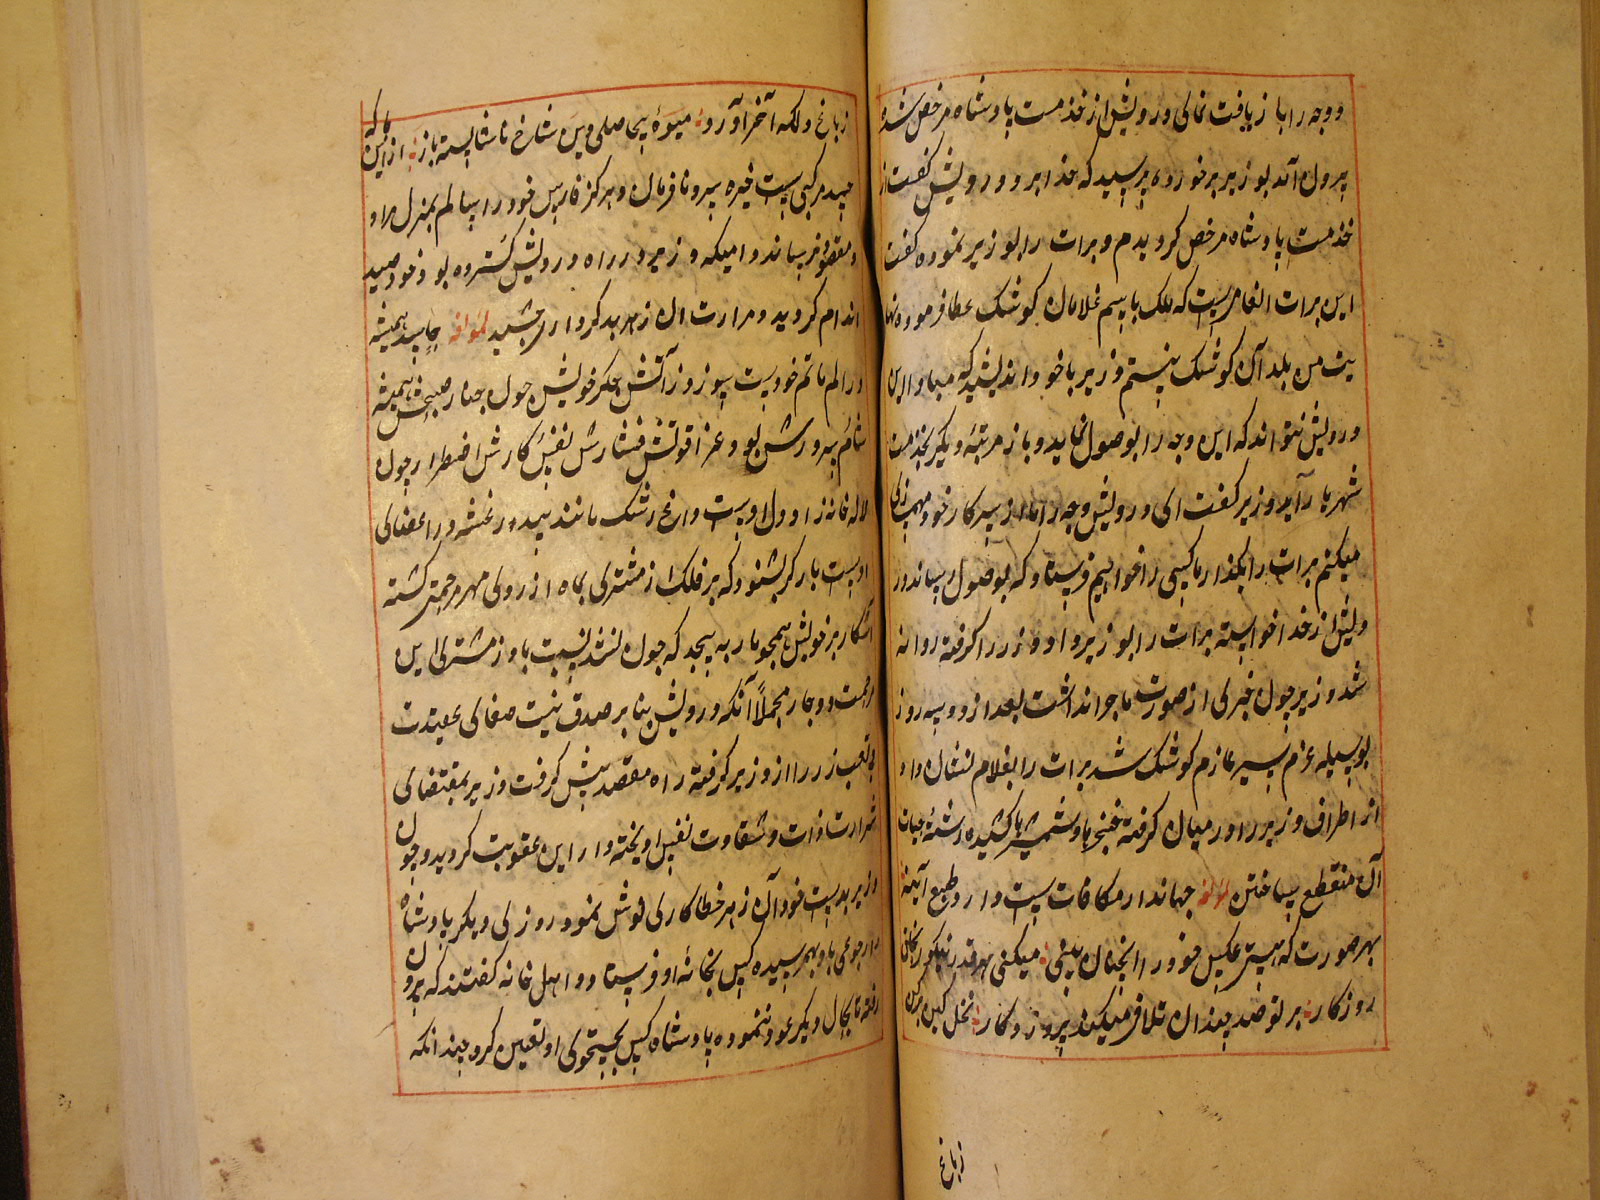 و وجه را باز یافت نمای درویش از خدمت پادشاه مرخص شده
برون آمد بوزیر برخورده پرسید که خدا برو درویش گفت از
خدمت پادشاه مرخص کردیدم و برات را بوزیر نموده گفت
این برات انعامیست که ملک باسم غلامان کوشک عطا فرموده
من بلد آن کوشک نیستم وزیر با خود اندیشید که مبادا این
درویش نتواند که این وجه را بوصول نماید و باز مرتبهٔ دیگر بخدمت
شهریار آید وزیر گفت ای درویش وجه را ما از سرکار خود مهمسازی
میکنم برات را بگذار ما کسی را خواهیم فرستاد که بوصول رساند در
ویش از خدا خواسته برات را بوزیر داد و زر را گرفته روانه
شد وزیر چون خبری از صورت ماجرا نداشت بعد از دو سه روز
بوسیله عزم سیر عازم کوشک شد برات را بغلام نشان داد
از اطراف وزیر را در میان گرفته خنجرها و شمشیرها کشیده رشتهٔ حیات
آن منقطع ساختن لمؤلفه جهاندار مکافاتست دارد طبع آینه
بهر صورت که هستی عکس خود را آنچنان بینی میکنی هر قدر نیکو
روزگار بر تو صد چندان تلافی میکند پروزدکار نخل کین
زباغ
زباغ دلکه آخر آورد میوهٔ بیحاصلی وین شاخ ناشایسته باز از این که
حسد مرکبی است خیره سر و نافرمان و هرگز فارس خود را سالم بمنزل مراد
و مقصود نرساند دامیکه وزیر در راه درویش گسترده بود خود صید
اندام گردید و مرارت آن زهر بد کردار چشید لمؤلفه حاسد همیشه
در الم ماتم خود است سوزد ز آتش جگر خویش چون چنار صبحش همیشه
شام بود
لاله خانه زاد دل اوست داغ رشک مانند بید در عشه در اعضای
اوست بار گر بشنود که بر فلک از مشتری بماه از روی مهر مرحمتی گشته
آشکار بر خویش همچو مار به پیچد که چون نشد نسبت باو ز مشتری این
رحمت دوچار مجملاً آنکه درویش بنا بر صدق نیت صفای عقیدت
بی تعب زر را از وزیر گرفته راه مقصد پیش گرفت وزیر بمقتضای
شرارت ذات و شقاوت نفس آویخته دار این عقوبت گردید و چون
وزیر بدست خود آن زهر خطاکاری نوش نمود روزی دیگر پادشاه
را رجوعی باو بهم رسیده کس بخانه او فرستاد و اهل خانه گفتند که برون
رفته تا بحال دیگر عود ننموده پادشاه کس بجستجوی او تعین کرد چندانکه